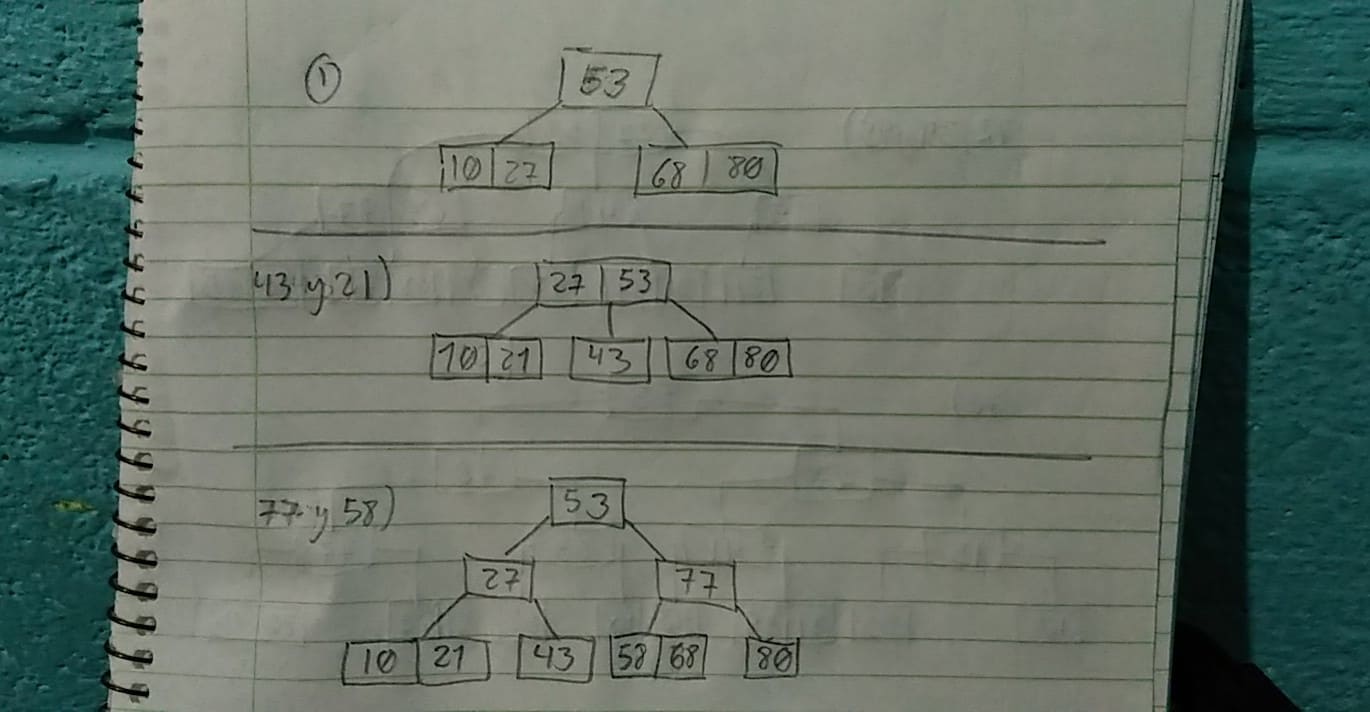 ①
53
10 27 68 80
43 y 21)
27 53
10 21 43 68 80
77 y 58)
53
27 77
10 21 43 58 68 80